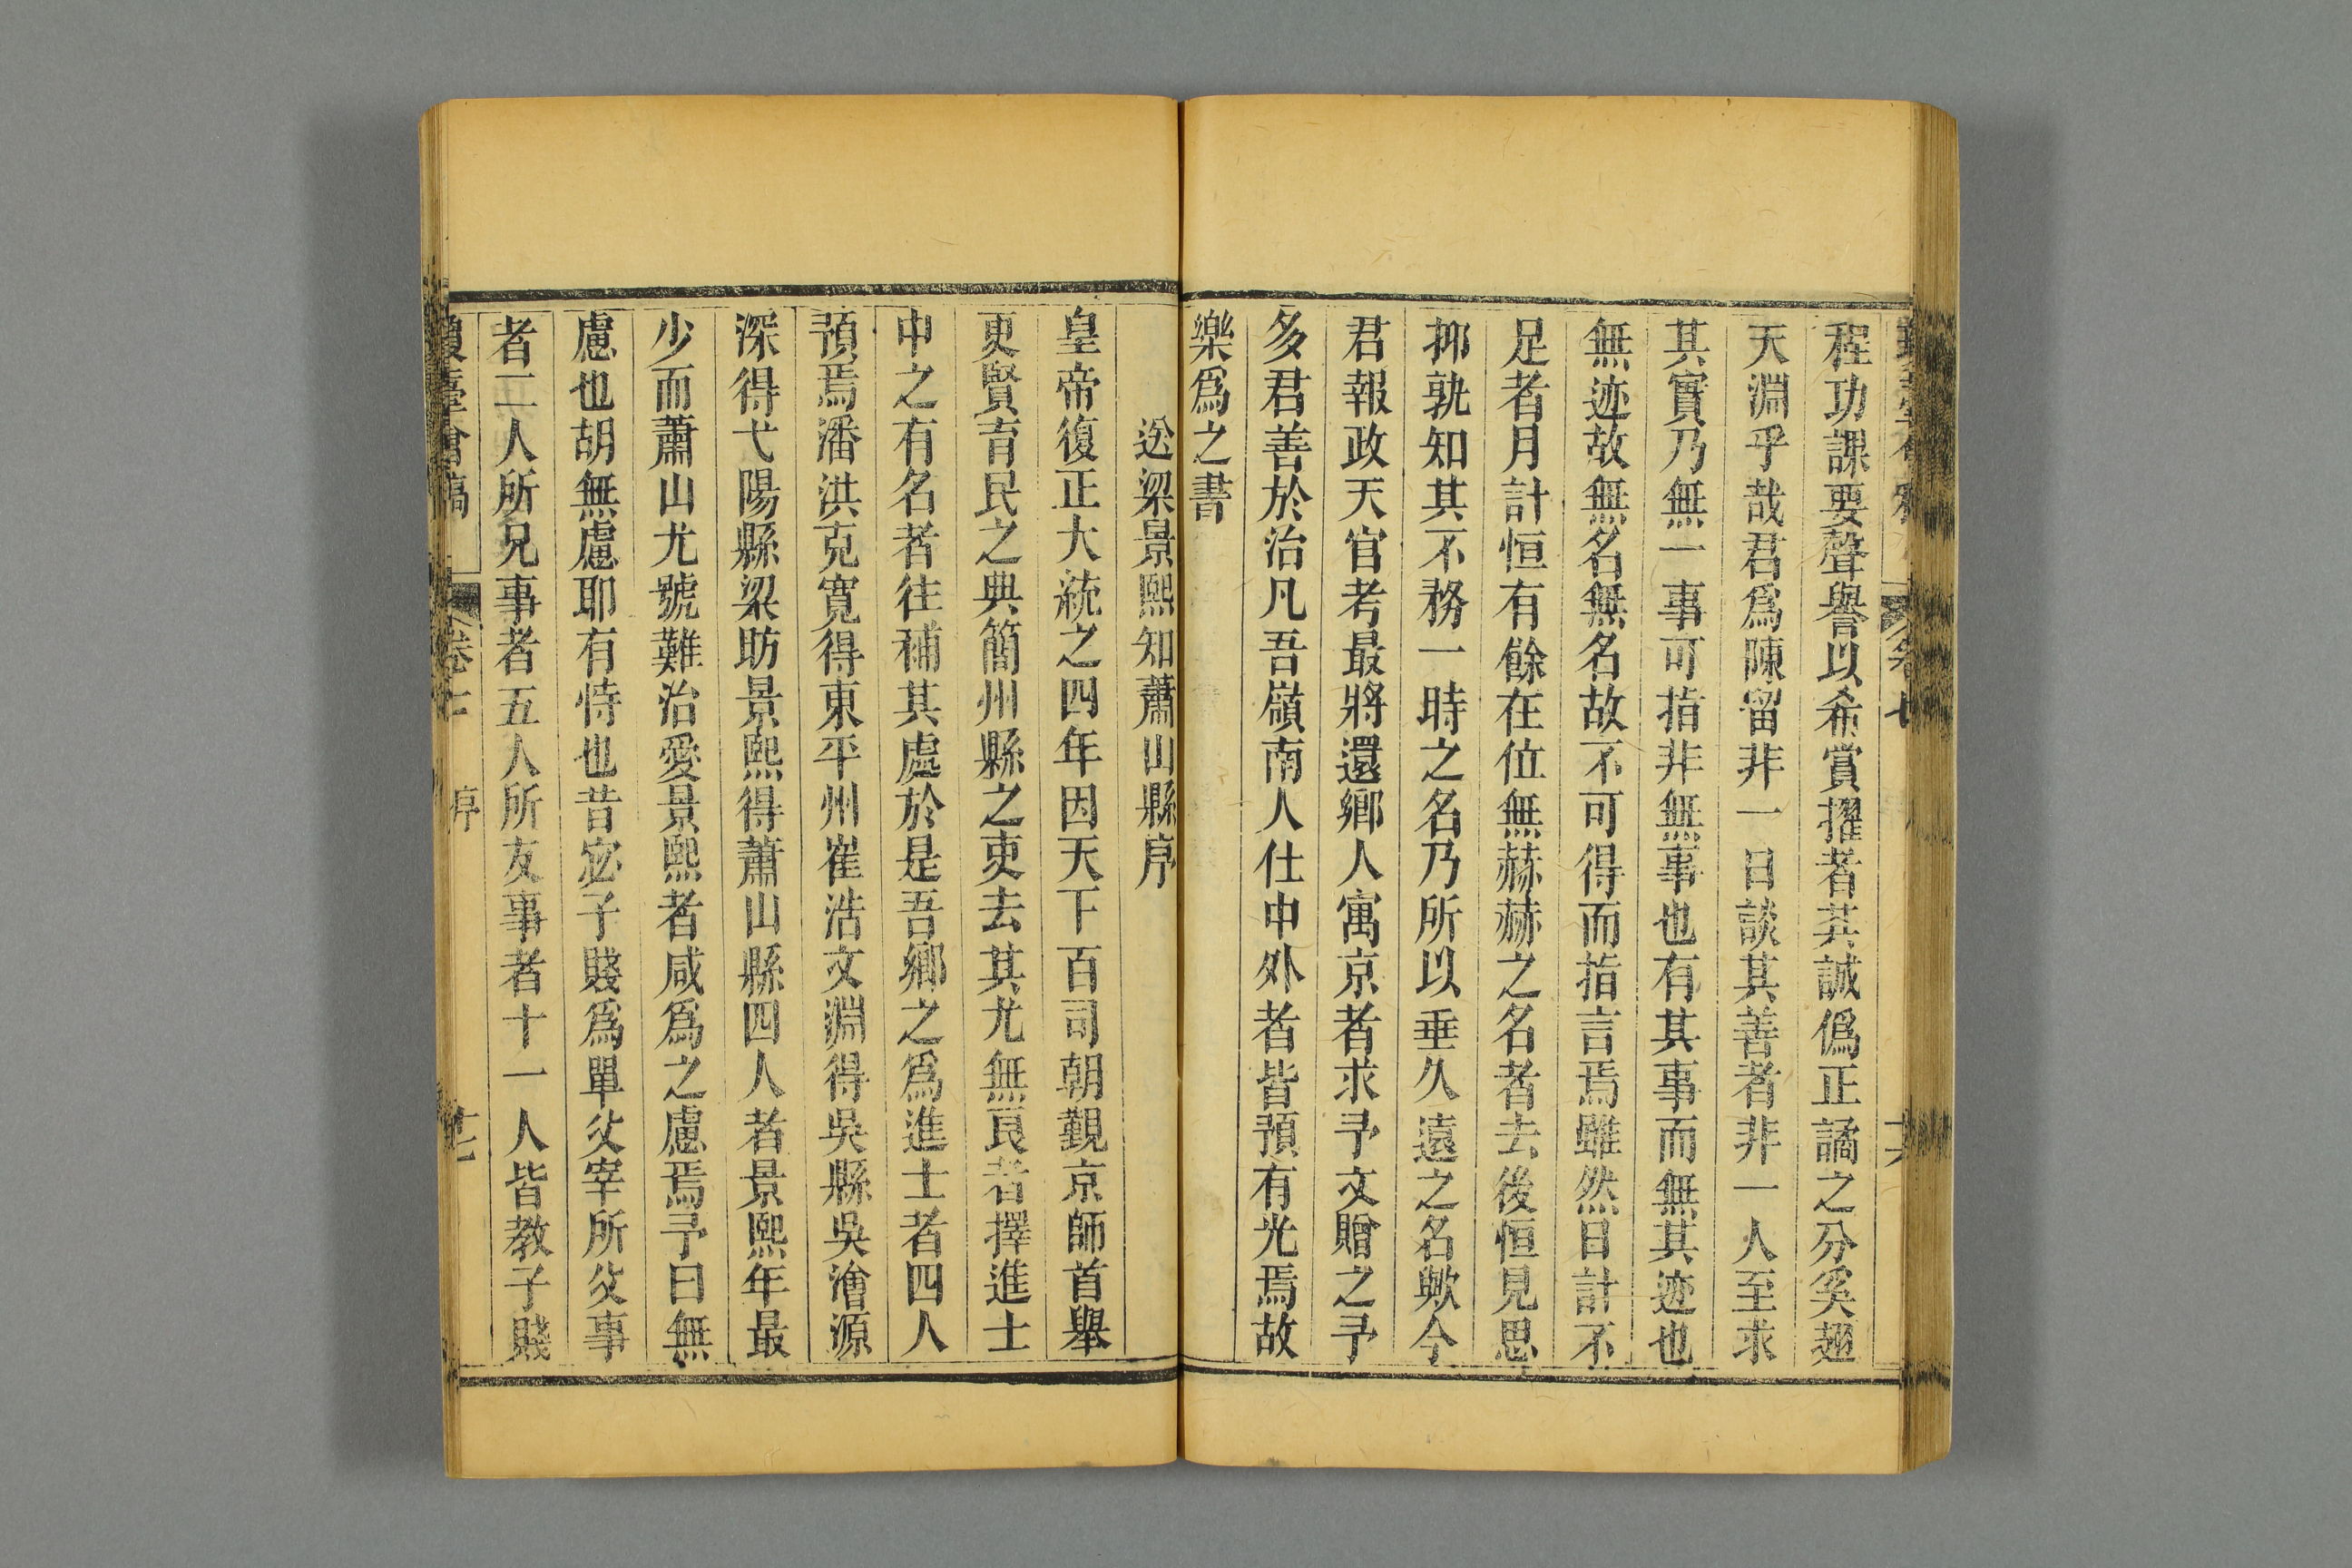 程功課要聲譽以希賞擢者其誠僞正譎之分奚趐
天淵乎哉君爲陳留非一日談其善者非一人至求
其實乃無一事可指非無事也有其事而無其迹也
無迹故無名無名故不可得而指言焉雖然日計不
足者月計恒有餘在位無赫赫之名者去後恒見思
抑孰知其不務一時之名乃所以垂久遠之名歟今
君報政天官考最將還鄉人寓京者求予文贈之予
多君善於治凡吾嶺南人仕中外者皆預有光焉故
樂爲之書
送梁景熙知蕭山縣序
皇帝復正大統之四年因天下百司朝覲京師首舉
更賢育民之典簡州縣之吏去其尤無良者擇進士
中之有名者往補其處於是吾鄉之爲進士者四人
預焉潘洪克寬得東平州崔浩文淵得吳縣吳澮源
深得弋陽縣梁昉景熙得蕭山縣四人者景熙年最
少而蕭山尤號難治愛景熙者咸爲之慮焉予曰無
慮也胡無慮耶有恃也昔宓子賤爲單父宰所父事
者二人所兄事者五人所友事者十一人皆教子賤
瓊臺會稿 卷七 序 十七